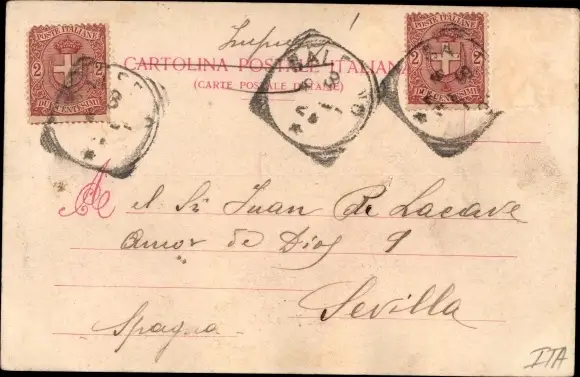 POSTE ITALIANE
2 2
DUE CENTESIMI
POSTE ITALIANE
2 2
DUE CENTESIMI
CARTOLINA POSTALE ITALIANA
(CARTE POSTALE D'ITALIE)
A el Sr Juan De Lacave
Amor de Dios 9
Sevilla
Spagna
ITA